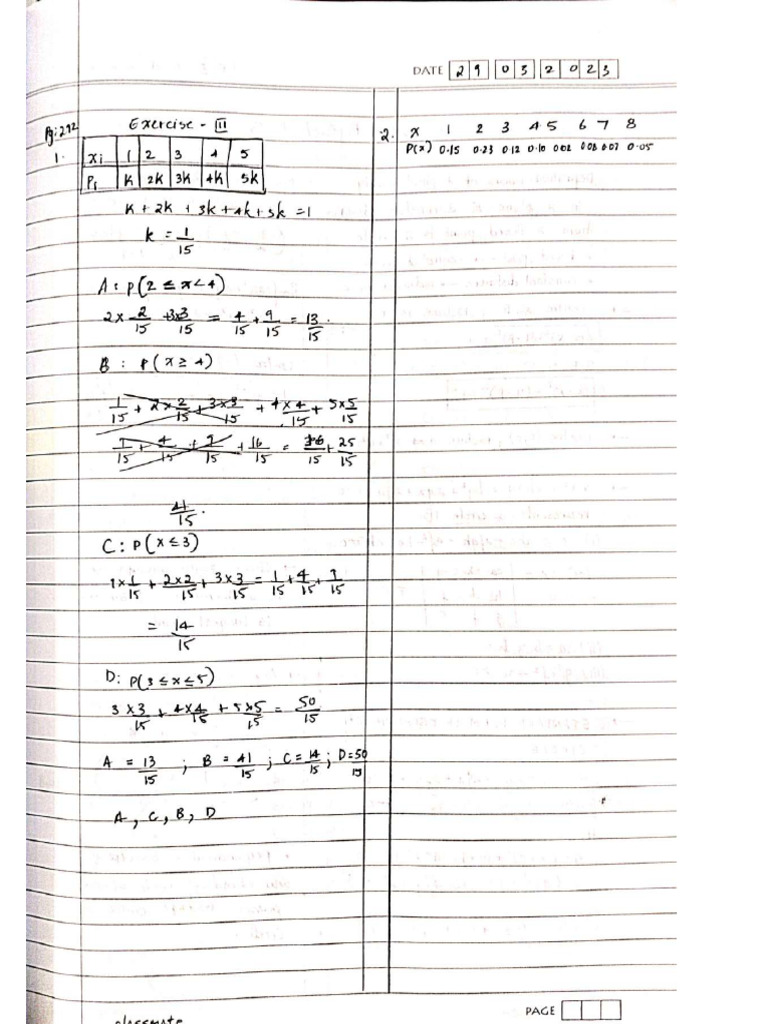 DATE 29 03 2023
Pg:292
Exercise - II
1. xi 1 2 3 4 5
Pi K 2K 3K 4K 5K
K + 2K + 3K + 4K + 5K = 1
k = 1/15
A: P(2 ≤ x < 4)
2 × 2/15 + 3×3/15 = 4/15 + 9/15 = 13/15.
B: P(x ≥ 4)
1/15 + 2×2/15 + 3×3/15 + 4×4/15 + 5×5/15
1/15 + 4/15 + 9/15 + 16/15 = 16/15 + 25/15
41/15.
C: P(x ≤ 3)
1×1/15 + 2×2/15 + 3×3/15 = 1/15 + 4/15 + 9/15
= 14/15
D: P(3 ≤ x ≤ 5)
3×3/15 + 4×4/15 + 5×5/15 = 50/15
A = 13/15 ; B = 41/15 ; C = 14/15 ; D = 50/15
A, C, B, D
2. x 1 2 3 4 5 6 7 8
P(x) 0.15 0.23 0.12 0.10 0.02 0.08 0.07 0.05
classmate
PAGE